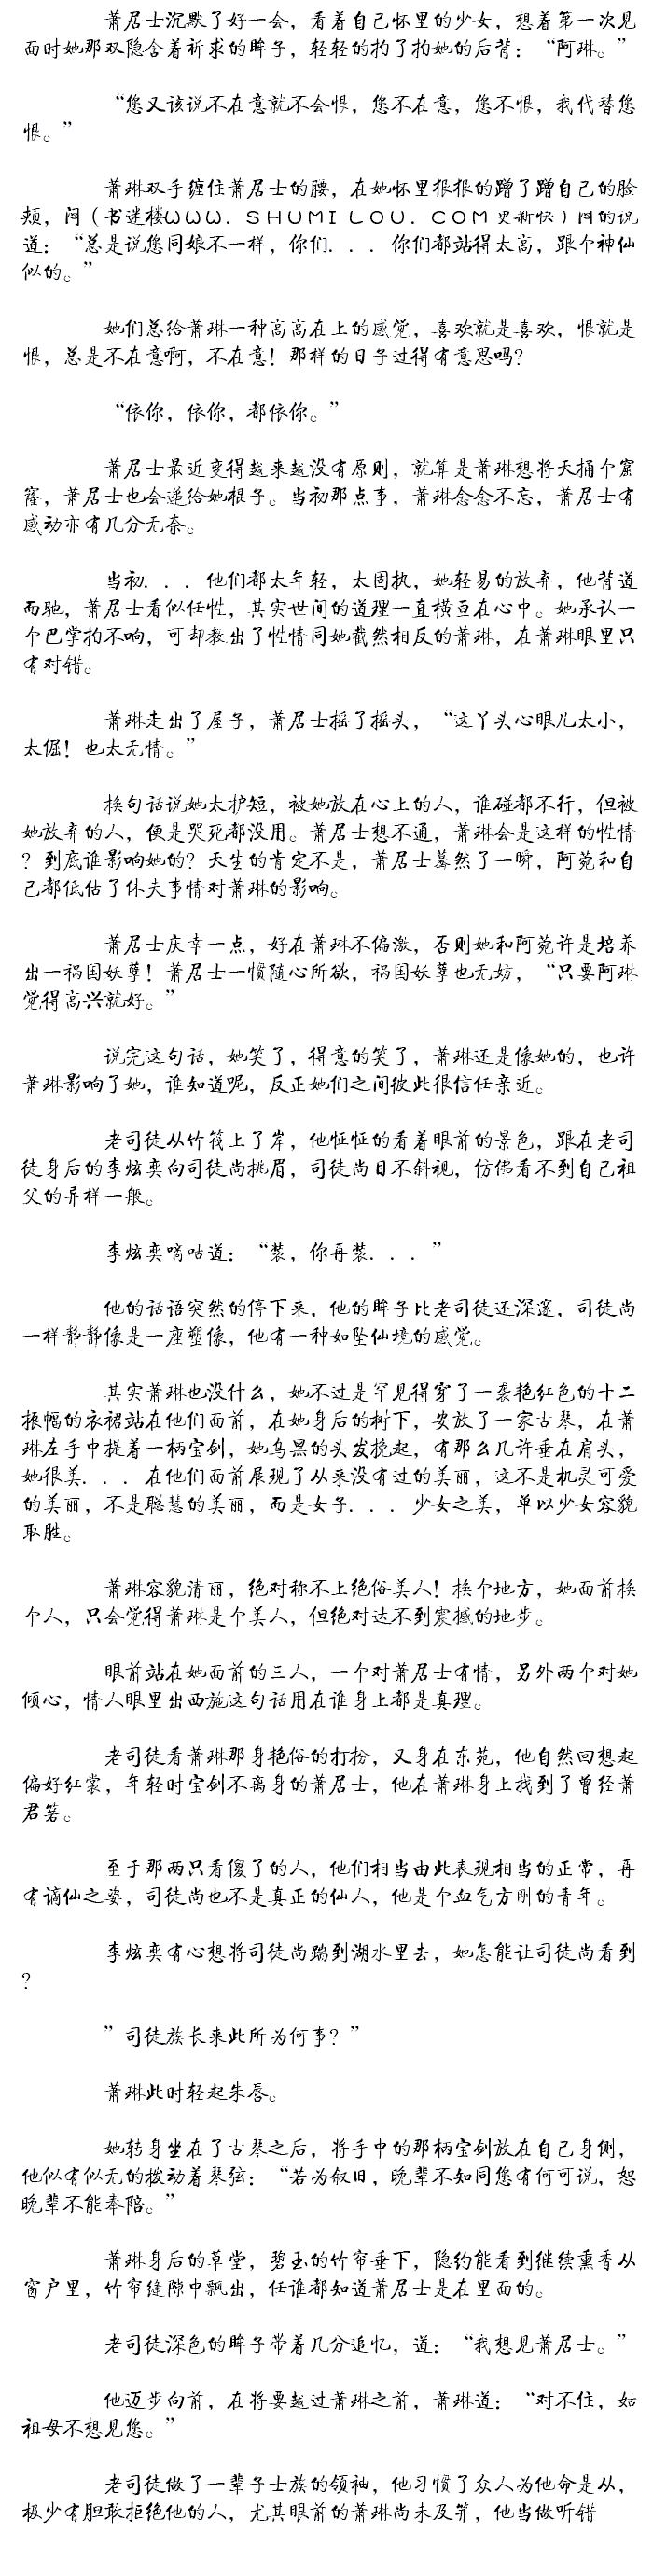 萧居士沉默了好一会，看着自己怀里的少女，想着第一次见
面时她那双隐含着祈求的眸子，轻轻的拍了拍她的后背：“阿琳。”
“您又该说不在意就不会恨，您不在意，您不恨，我代替您
恨。”
萧琳双手缠住萧居士的腰，在她怀里狠狠的蹭了蹭自己的脸
颊，闷（书迷楼ωωω．ＳＨＵＭＩＬＯＵ．ＣＯＭ更新快）闷的说
道：“总是说您同娘不一样，你们．．．你们都站得太高，跟个神仙
似的。”
她们总给萧琳一种高高在上的感觉，喜欢就是喜欢，恨就是
恨，总是不在意啊，不在意！那样的日子过得有意思吗？
“依你，依你，都依你。”
萧居士最近变得越来越没有原则，就算是萧琳想将天捅个窟
窿，萧居士也会递给她棍子。当初那点事，萧琳念念不忘，萧居士有
感动亦有几分无奈。
当初．．．他们都太年轻，太固执，她轻易的放弃，他背道
而驰，萧居士看似任性，其实世间的道理一直横亘在心中。她承认一
个巴掌拍不响，可却教出了性情同她截然相反的萧琳，在萧琳眼里只
有对错。
萧琳走出了屋子，萧居士摇了摇头，“这丫头心眼儿太小，
太倔！也太无情。”
换句话说她太护短，被她放在心上的人，谁碰都不行，但被
她放弃的人，便是哭死都没用。萧居士想不通，萧琳会是这样的性情
？到底谁影响她的？天生的肯定不是，萧居士蓦然了一瞬，阿菀和自
己都低估了休夫事情对萧琳的影响。
萧居士庆幸一点，好在萧琳不偏激，否则她和阿菀许是培养
出一祸国妖孽！萧居士一惯随心所欲，祸国妖孽也无妨，“只要阿琳
觉得高兴就好。”
说完这句话，她笑了，得意的笑了，萧琳还是像她的，也许
萧琳影响了她，谁知道呢，反正她们之间彼此很信任亲近。
老司徒从竹筏上了岸，他怔怔的看着眼前的景色，跟在老司
徒身后的李炫奕向司徒尚挑眉，司徒尚目不斜视，仿佛看不到自己祖
父的异样一般。
李炫奕嘀咕道：“装，你再装．．．”
他的话语突然的停下来，他的眸子比老司徒还深邃，司徒尚
一样静静像是一座塑像，他有一种如坠仙境的感觉。
其实萧琳也没什么，她不过是罕见得穿了一袭艳红色的十二
振幅的衣裙站在他们面前，在她身后的树下，安放了一家古琴，在萧
琳左手中提着一柄宝剑，她乌黑的头发挽起，有那么几许垂在肩头，
她很美．．．在他们面前展现了从来没有过的美丽，这不是机灵可爱
的美丽，不是聪慧的美丽，而是女子．．．少女之美，单以少女容貌
取胜。
萧琳容貌清丽，绝对称不上绝俗美人！换个地方，她面前换
个人，只会觉得萧琳是个美人，但绝对达不到震撼的地步。
眼前站在她面前的三人，一个对萧居士有情，另外两个对她
倾心，情人眼里出西施这句话用在谁身上都是真理。
老司徒看萧琳那身艳俗的打扮，又身在东苑，他自然回想起
偏好红裳，年轻时宝剑不离身的萧居士，他在萧琳身上找到了曾经萧
君箬。
至于那两只看傻了的人，他们相当由此表现相当的正常，再
有谪仙之姿，司徒尚也不是真正的仙人，他是个血气方刚的青年。
李炫奕有心想将司徒尚踹到湖水里去，她怎能让司徒尚看到
？
”司徒族长来此所为何事？”
萧琳此时轻起朱唇。
她转身坐在了古琴之后，将手中的那柄宝剑放在自己身侧，
他似有似无的拨动着琴弦：“若为叙旧，晚辈不知同您有何可说，恕
晚辈不能奉陪。”
萧琳身后的草堂，碧玉的竹帘垂下，隐约能看到继续熏香从
窗户里，竹帘缝隙中飘出，任谁都知道萧居士是在里面的。
老司徒深色的眸子带着几分追忆，道：“我想见萧居士。”
他迈步向前，在将要越过萧琳之前，萧琳道：“对不住，姑
祖母不想见您。”
老司徒做了一辈子士族的领袖，他习惯了众人为他命是从，
极少有胆敢拒绝他的人，尤其眼前的萧琳尚未及笄，他当做听错